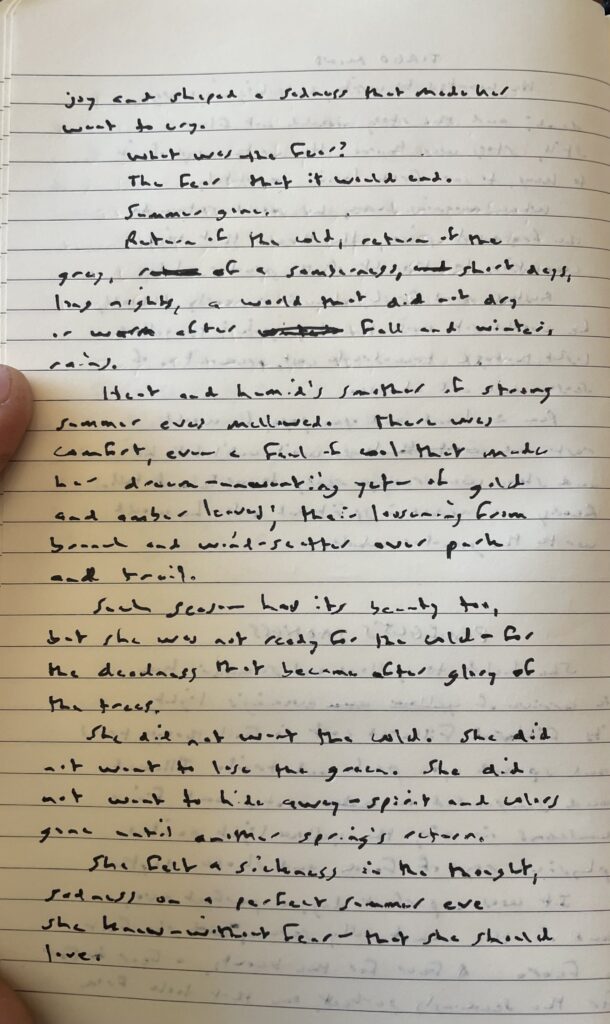 joy and shaped a sadness that made her
want to cry.
What was the fear?
The fear that it would end.
Summer gone.
Return of the cold, return of the
gray, of a somberness, and short days,
long nights, a world that did not dry
or warm after fall and winter's
rains.
Heat and humid's smother of strong
summer eves mellowed. There was
comfort, even a feel of cool that made
her dream-anticipating yet of gold
and amber leaves; their loosening from
branch and wind-scatter over park
and trail.
Such season had its beauty too,
but she was not ready for the cold-for
the deadness that became after glory of
the trees.
She did not want the cold. She did
not want to lose the green. She did
not want to hide away-spirit and colors
gone until another spring's return.
She felt a sickness in the thought,
sadness on a perfect summer eve
she knew-without fear-that she should
love.